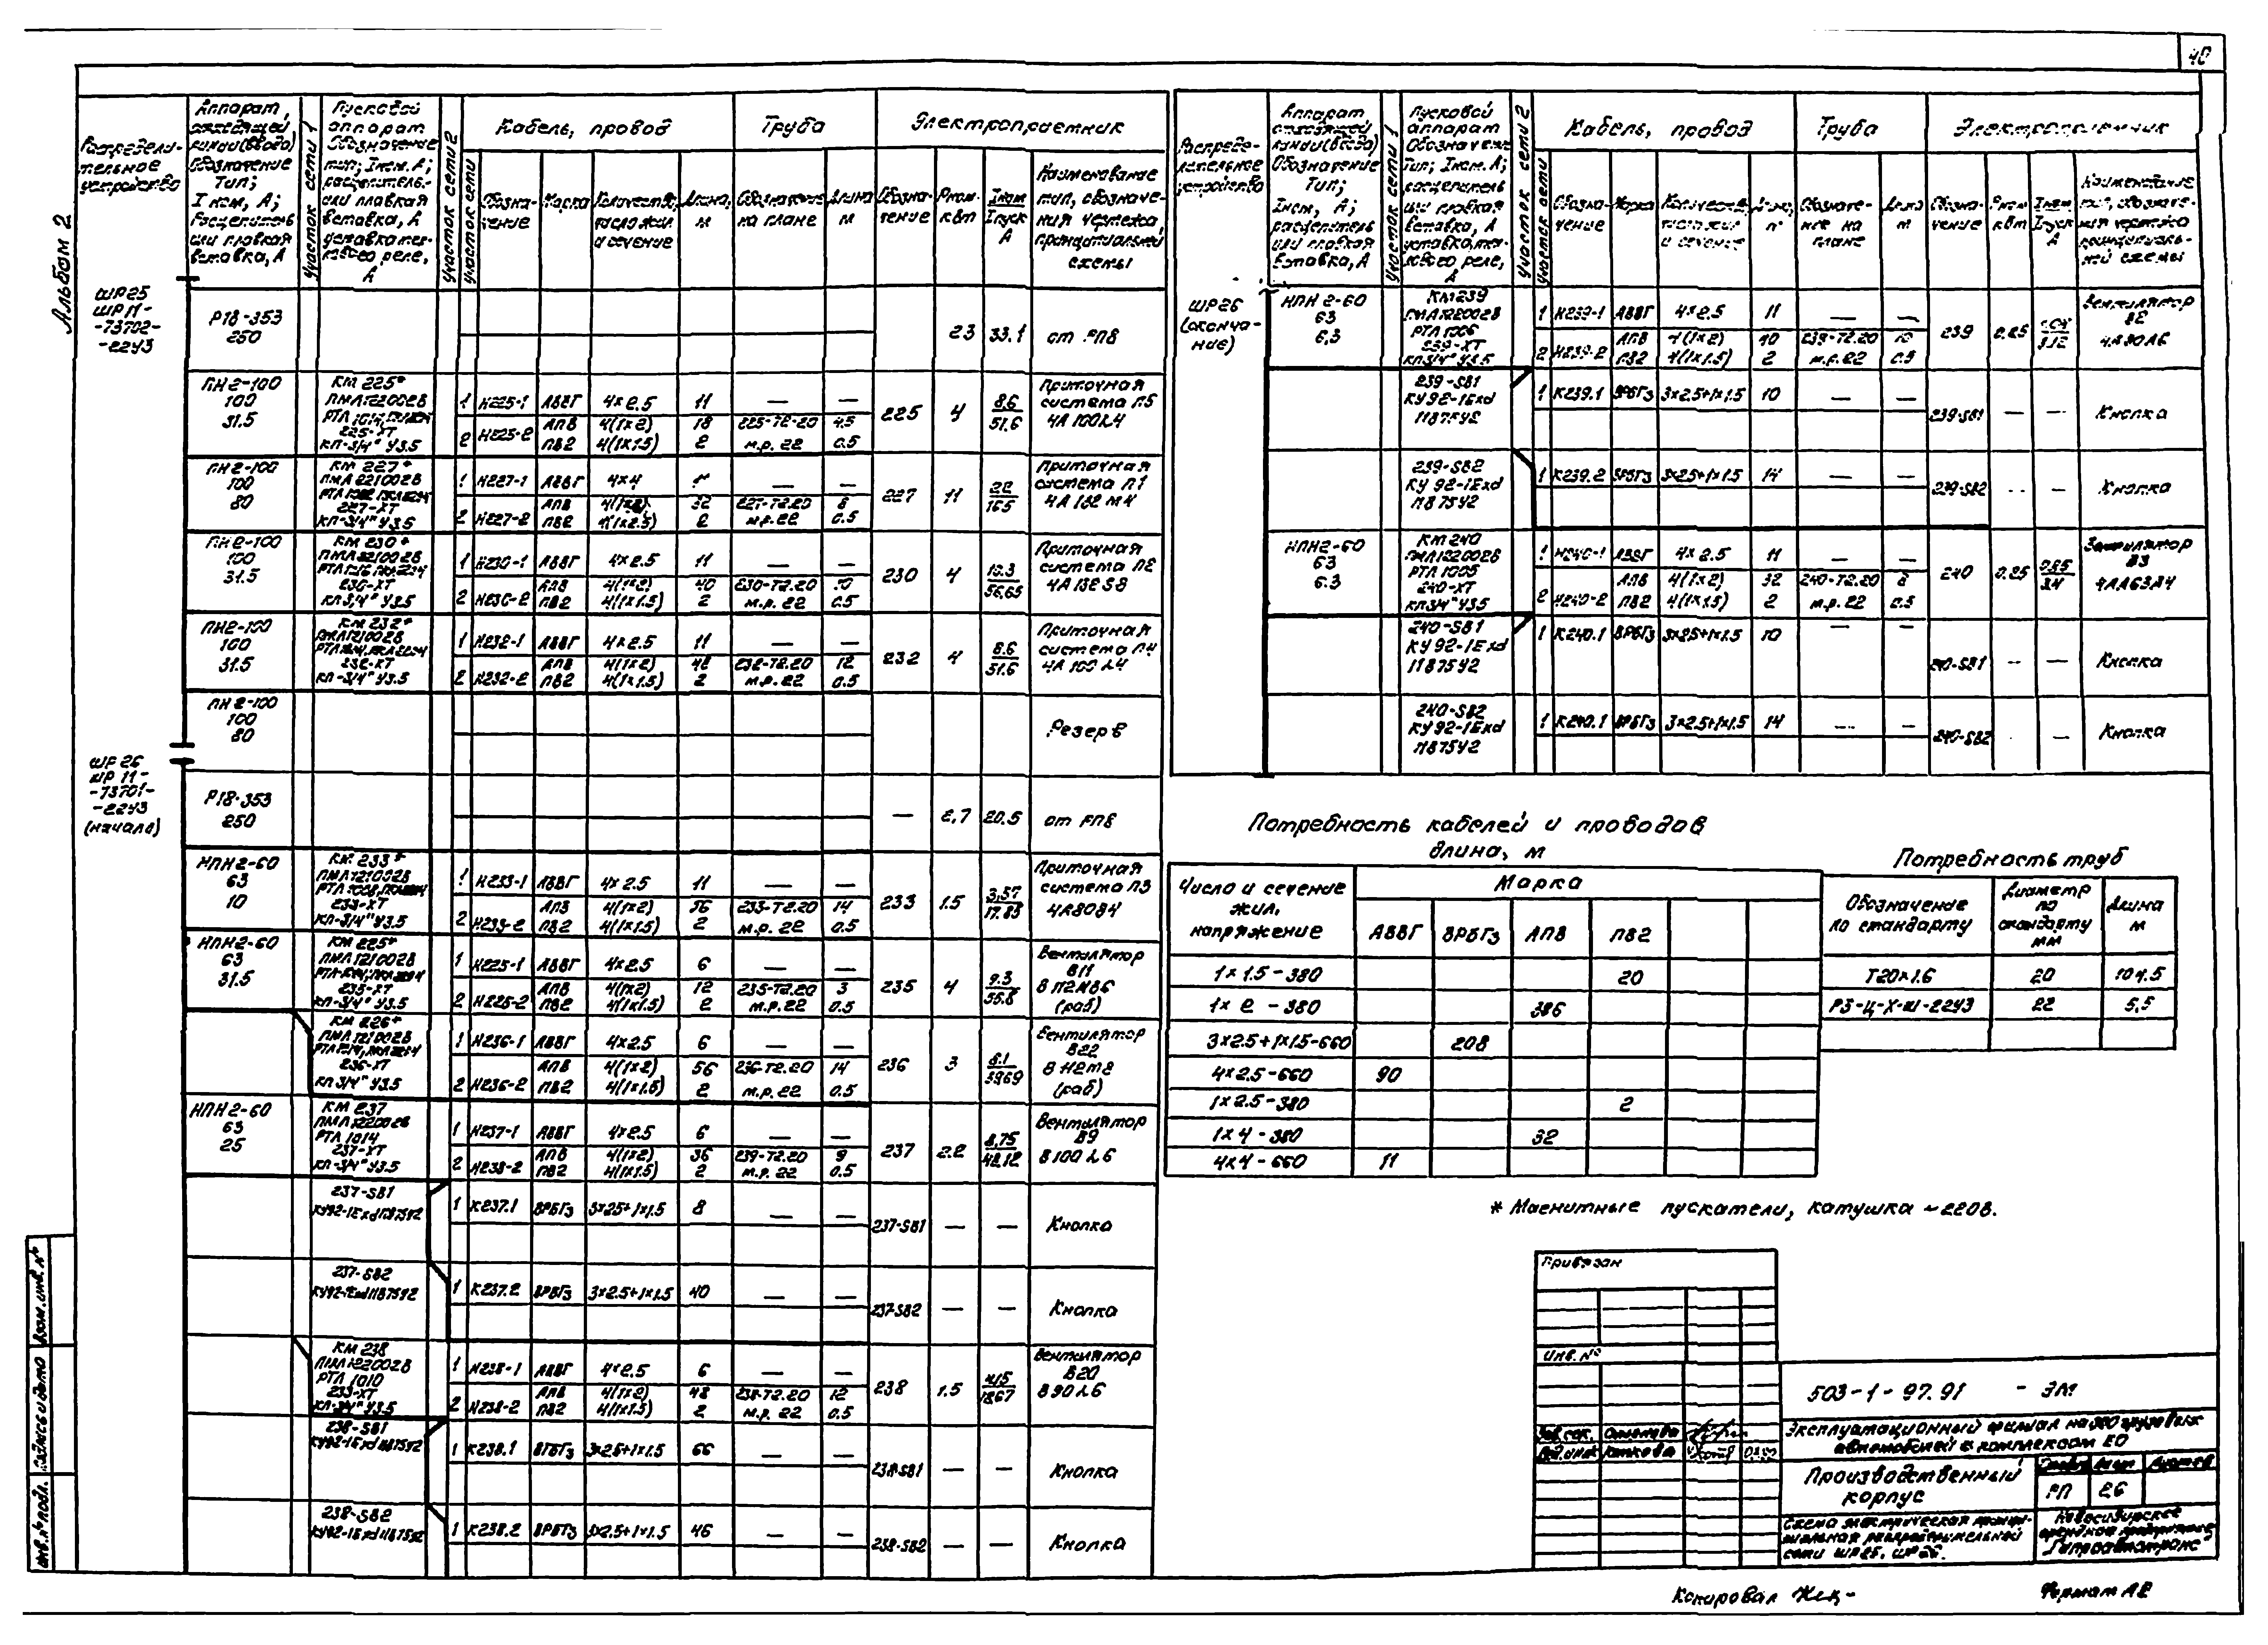 40
Альбом 2
Распределительное устройство
Аппарат, отходящей линии (ввода) Обозначение Тип; Iном, А; Расцепитель или плавкая вставка, А
Участок сети 1
Пусковой аппарат Обозначение тип; Iном. А; расцепитель или плавкая вставка, А уставка теплового реле, А
Участок сети 2
Участок сети
Кабель, провод
Труба
Электроприемник
Обозначение Марка Количество, число жил и сечение Длина, м
Обозначение на плане Длина м
Обозначение Рном. кВт Iном Iпуск А Наименование тип, обозначения чертежа, принципиальной схемы
ШР25
ШР11-
-73702-
-22У3
Р18-353
250
23 33.1 от РП8
ПН2-100 100 31.5
КМ 225*
225-ХТ
КП-3/4" У3.5
1 Н225-1 АВВГ 4×2.5 11 — —
АПВ 4(1×2) 18 225-Т2.20 4.5
2 Н225-2 ПВ2 4(1×1.5) 2 м.р. 22 0.5
225 4 8.6 51.6
Приточная система П5 4А 100L4
ПН2-100 100 80
КМ 227*
ПМЛ 221002В
227-ХТ
КП-3/4" У3.5
Н227-1 АВВГ 4×4 — —
АПВ 32 227-Т2.20 8
2 Н227-2 ПВ2 4(1×2.5) 2 м.р. 22 0.5
227 11 22 165
Приточная система П1 4А 132 М4
ПН2-100 100 31.5
КМ 230*
230-ХТ
КП 3/4" У3.5
1 Н230-1 АВВГ 4×2.5 11 — —
АПВ 4(1×2) 40 230-Т2.20 10
2 Н230-2 ПВ2 4(1×1.5) 2 м.р. 22 0.5
230 4 56.65
Приточная система П2 4А132 S8
ПН2-100 100 31.5
КМ 232*
ПМЛ 121002В
232-ХТ
КП-3/4" У3.5
1 Н232-1 АВВГ 4×2.5 11 — —
АПВ 4(1×2) 48 232-Т2.20 12
2 Н232-2 ПВ2 4(1×1.5) 2 м.р. 22 0.5
232 4 8.6 51.6
Приточная система П4 4А 100 L4
ПН2-100 100 80
Резерв
ШР26
ШР11-
-73701-
-22У3
(начало)
Р18-353
250
— 20.5 от РП8
НПН2-60 63 10
КМ 233*
ПМЛ 121002В
233-ХТ
КП-3/4" У3.5
Н233-1 АВВГ 4×2.5 11 — —
АПВ 4(1×2) 56 233-Т2.20 14
2 Н233-2 ПВ2 4(1×1.5) 2 м.р. 22 0.5
233 1.5 3,57 17.85
Приточная система П3 4А80В4
НПН2-60 63 31.5
КМ 225*
ПМЛ 121002В
235-ХТ
КП-3/4" У3.5
1 Н225-1 АВВГ 4×2.5 6 — —
АПВ 4(1×2) 12 235-Т2.20 3
2 Н225-2 ПВ2 4(1×1.5) 2 м.р. 22 0.5
235 4 9.3 55.8
Вентилятор В11 (раб)
КМ 226*
236-ХТ
КП 3/4" У3.5
1 Н236-1 АВВГ 4×2.5 6 — —
АПВ 4(1×2) 56 236-Т2.20 14
2 Н236-2 ПВ2 4(1×1.5) 2 м.р. 22 0.5
236 3 6.1
Вентилятор В22 (раб)
НПН2-60 63 25
КМ 237
ПМЛ 122002В
РТЛ 1014
237-ХТ
КП-3/4" У3.5
1 Н237-1 АВВГ 4×2.5 6 — —
АПВ 4(1×2) 36 239-Т2.20 9
2 Н238-2 ПВ2 4(1×1.5) 2 м.р. 22 0.5
237 2.2 8,75 48,12
Вентилятор В9 В100 L6
237-SB1
КУ92-1ExdIIВТ5У2
1 К237.1 ВРБГз 3×2.5+1×1.5 8 — —
237-SB1 — — Кнопка
237-SB2
1 К237.2 ВРБГз 3×2.5+1×1.5 40 — —
237-SB2 — — Кнопка
КМ 238
ПМЛ 122002В
РТЛ 1010
КП-3/4" У3.5
1 Н238-1 АВВГ 4×2.5 6 — —
АПВ 4(1×2) 48 238-Т2.20 12
2 Н238-2 ПВ2 4(1×1.5) 2 м.р. 22 0.5
238 1.5 4.15 18.67
Вентилятор В20 В90 L6
238-SB1
1 К238.1 ВРБГз 3×2.5+1×1.5 66 — —
238-SB1 — — Кнопка
238-SB2
1 К238.2 ВРБГз 3×2.5+1×1.5 46 — —
238-SB2 — — Кнопка
Распределительное устройство
Аппарат отходящей линии (ввода) Обозначение Тип; Iном, А; расцепитель или плавкая вставка, А
Участок сети 1
Пусковой аппарат Обозначение Тип; Iном. А; расцепитель или плавкая вставка, А уставка теплового реле, А
Участок сети 2
Участок сети
Кабель, провод
Труба
Электроприемник
Обозначение Марка Количество, число жил и сечение Длина, м
Обозначение на плане Длина м
Обозначение Рном. кВт Iном Iпуск А Наименование тип, обозначения чертежа принципиальной схемы
ШР26
(окончание)
НПН2-60 63 6,3
КМ239
ПМЛ122002В
РТЛ 1006
239-ХТ
КП3/4" У3.5
1 Н239-1 АВВГ 4×2.5 11 — —
АПВ 4(1×2) 40 239-Т2.20 10
2 Н239-2 ПВ2 4(1×1.5) 2 м.р. 22 0.5
239 0.25
Вентилятор
239-SB1
КУ92-1Exd
IIВТ5У2
1 К239.1 ВРБГз 3×2.5+1×1.5 10 — —
239-SB1 — — Кнопка
239-SB2
КУ 92-1Exd
IIВТ5У2
1 К239.2 ВРБГз 3×2.5+1×1.5 14 — —
239-SB2 — Кнопка
НПН2-60 63 6.3
КМ 240
ПМЛ122002В
РТЛ 1005
240-ХТ
КП3/4" У3.5
Н240-1 АВВГ 4×2.5 11 — —
АПВ 4(1×2) 32 240-Т2.20 8
2 Н240-2 ПВ2 4(1×1.5) 2 м.р. 22 0.5
240 0.25
Вентилятор В3 4АА63А4
240-SB1
КУ92-1Exd
IIВТ5У2
1 К240.1 ВРБГз 3×2.5+1×1.5 10 — —
240-SB1 — Кнопка
240-SB2
КУ92-1Exd
IIВТ5У2
1 К240.1 ВРБГз 3×2.5+1×1.5 14 — —
240-SB2 — Кнопка
Потребность кабелей и проводов
длина, м
Число и сечение жил, напряжение
Марка
АВВГ ВРБГз АПВ ПВ2
1×1.5-380 20
1×2-380 386
3×2.5+1×1.5-660 208
4×2.5-660 90
1×2.5-380 2
1×4-380 32
4×4-660 11
Потребность труб
Обозначение по стандарту Диаметр по стандарту мм Длина м
Т20×1.6 20 104.5
РЗ-Ц-Х-Ш-22У3 22 5,5
* Магнитные пускатели, катушка ~220В.
Привязан
Инв. №
503-1-97.91 - ЭМ
Эксплуатационный филиал на 300 грузовых
автомобилей с комплексом ЕО
Производственный корпус
Стадия Лист Листов
РП 26
Схема электрическая принципиальная распределительной сети ШР25, ШР26.
Новосибирское арендное предприятие "Гипроавтотранс"
Копировал
Формат А2
Инв. № подл. Подпись и дата Взам. инв. №